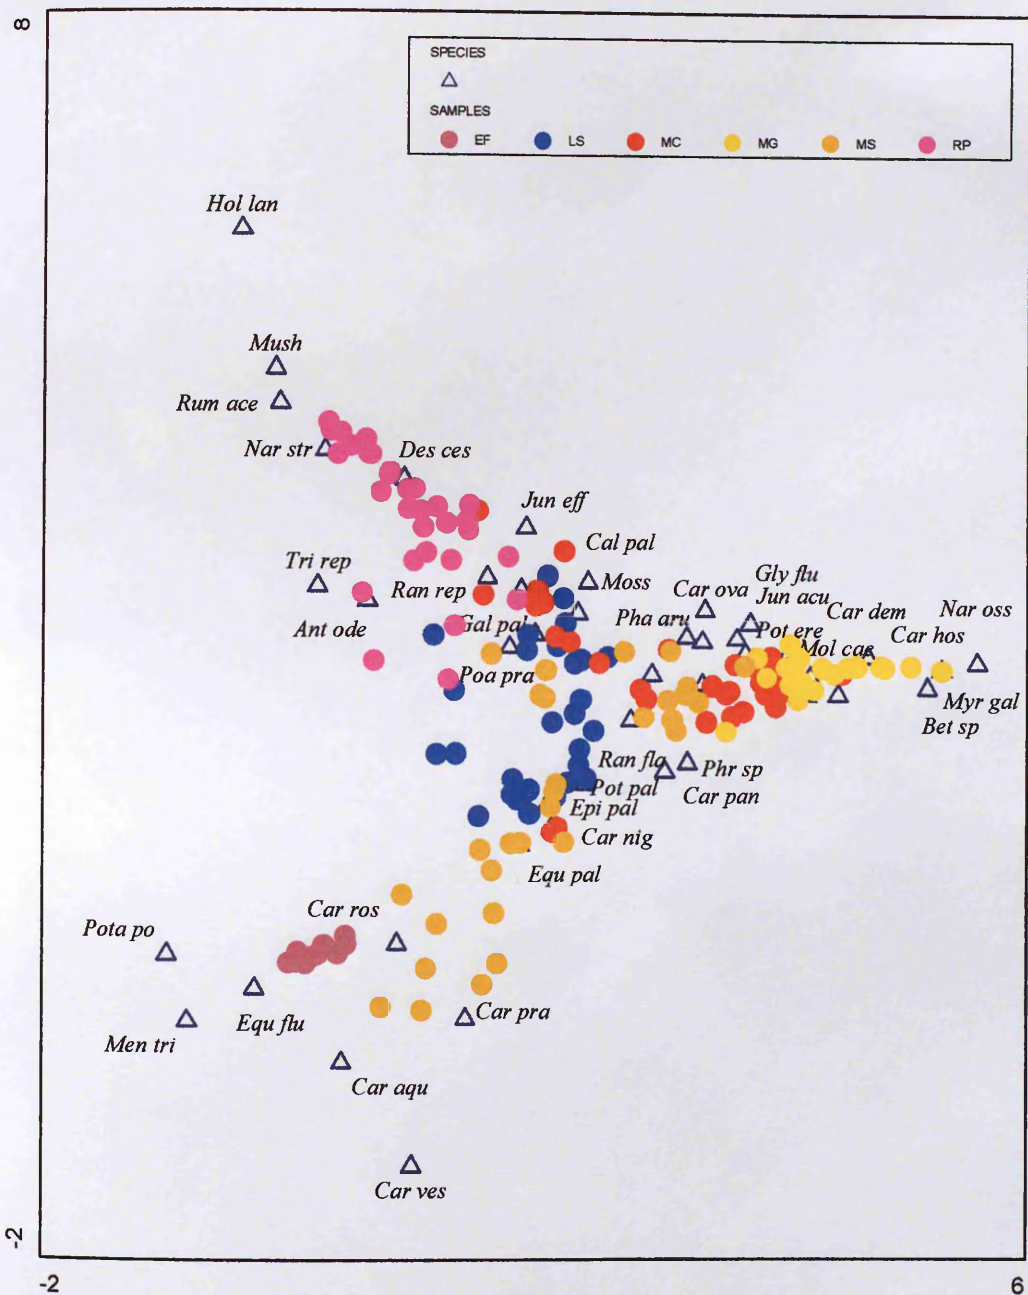 8
SPECIES
SAMPLES
EF LS MC MG MS RP
Hol lan
Mush
Rum ace
Nar str
Des ces
Jun eff
Cal pal
Tri rep
Ran rep
Moss
Gly flu
Car ova
Jun acu
Car dem
Nar oss
Ant ode
Gal pal
Pha aru
Pot ere
Car hos
Mol cae
Poa pra
Myr gal
Bet sp
Ran fla
Phr sp
Pot pal
Car pan
Epi pal
Car nig
Equ pal
Car ros
Pota po
Equ flu
Car pra
Men tri
Car aqu
Car ves
-2
-2 6